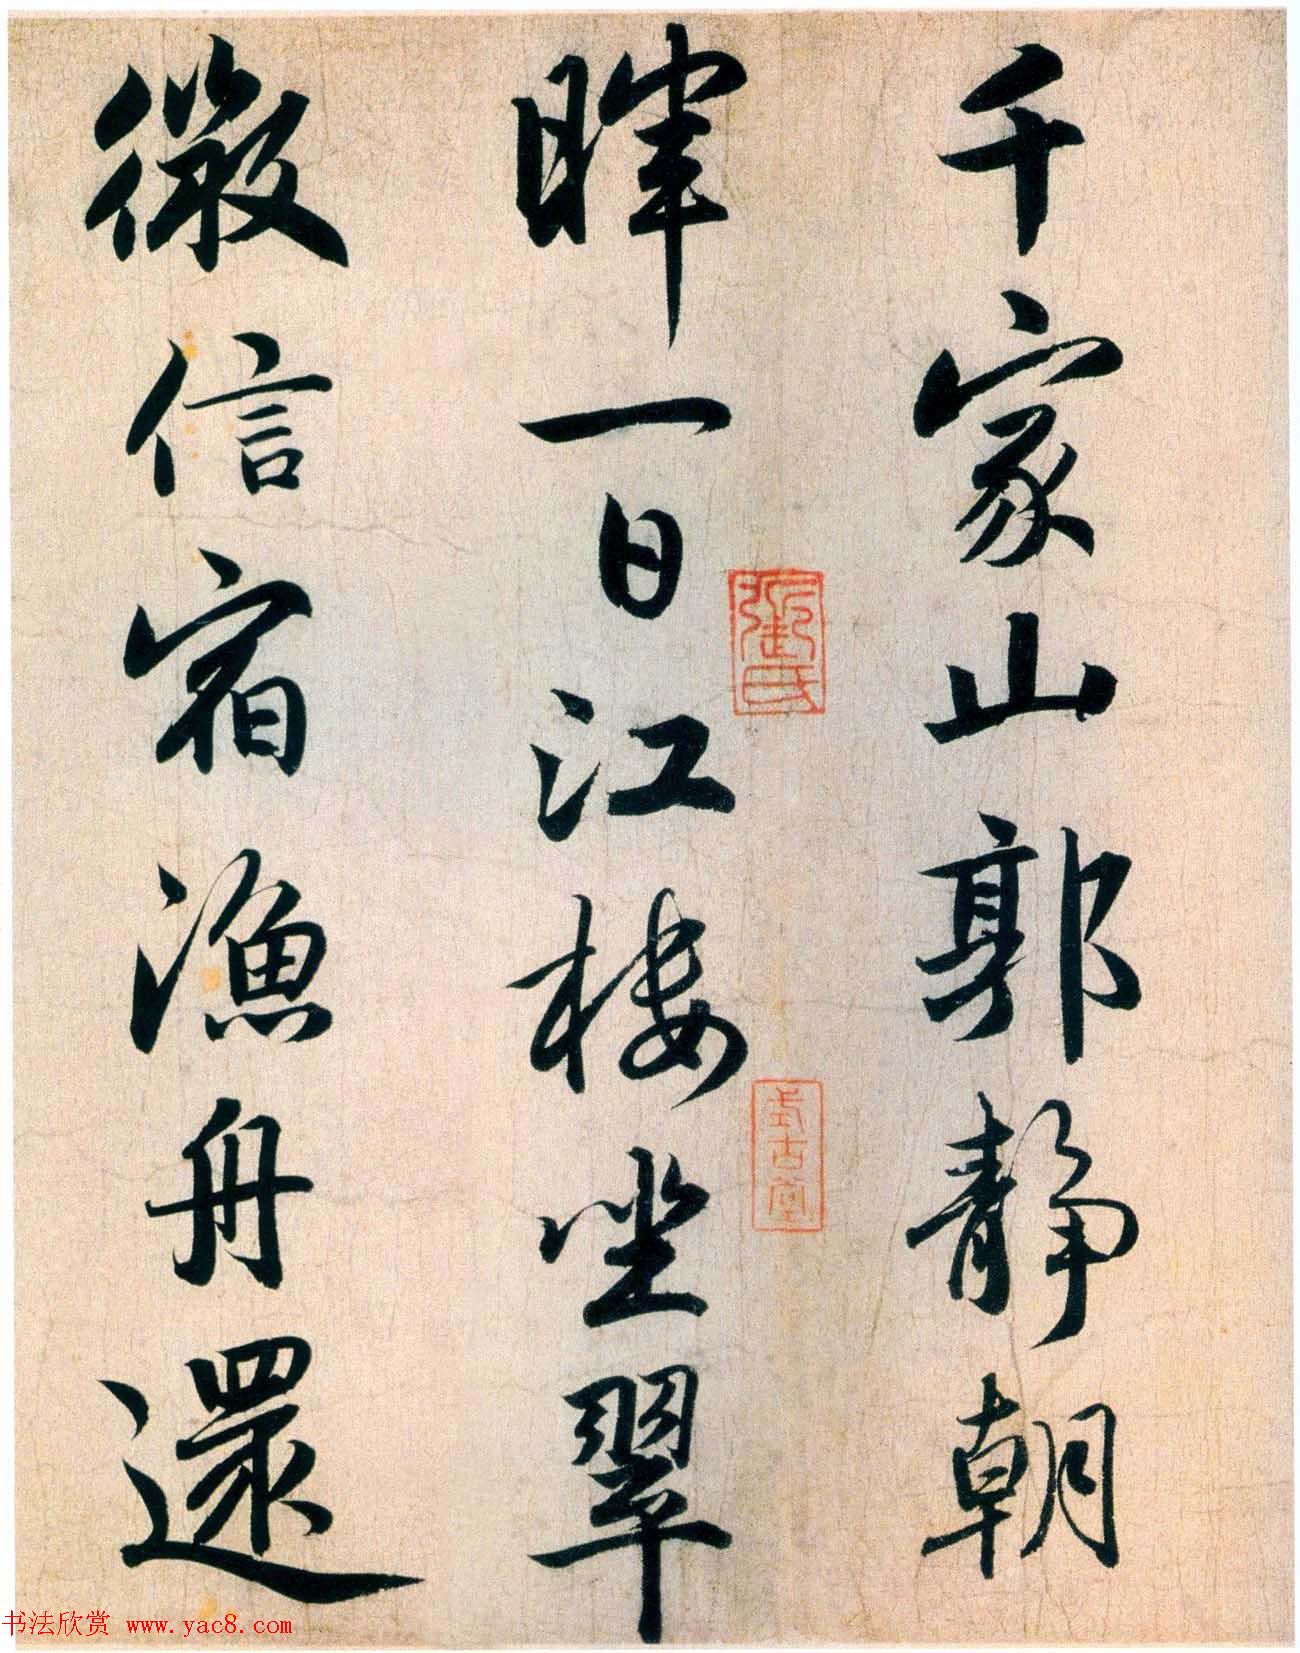 千家山郭静朝
暉一日江楼坐翠
微信宿漁舟還
張氏
式古堂
书法欣赏 www.yac8.com